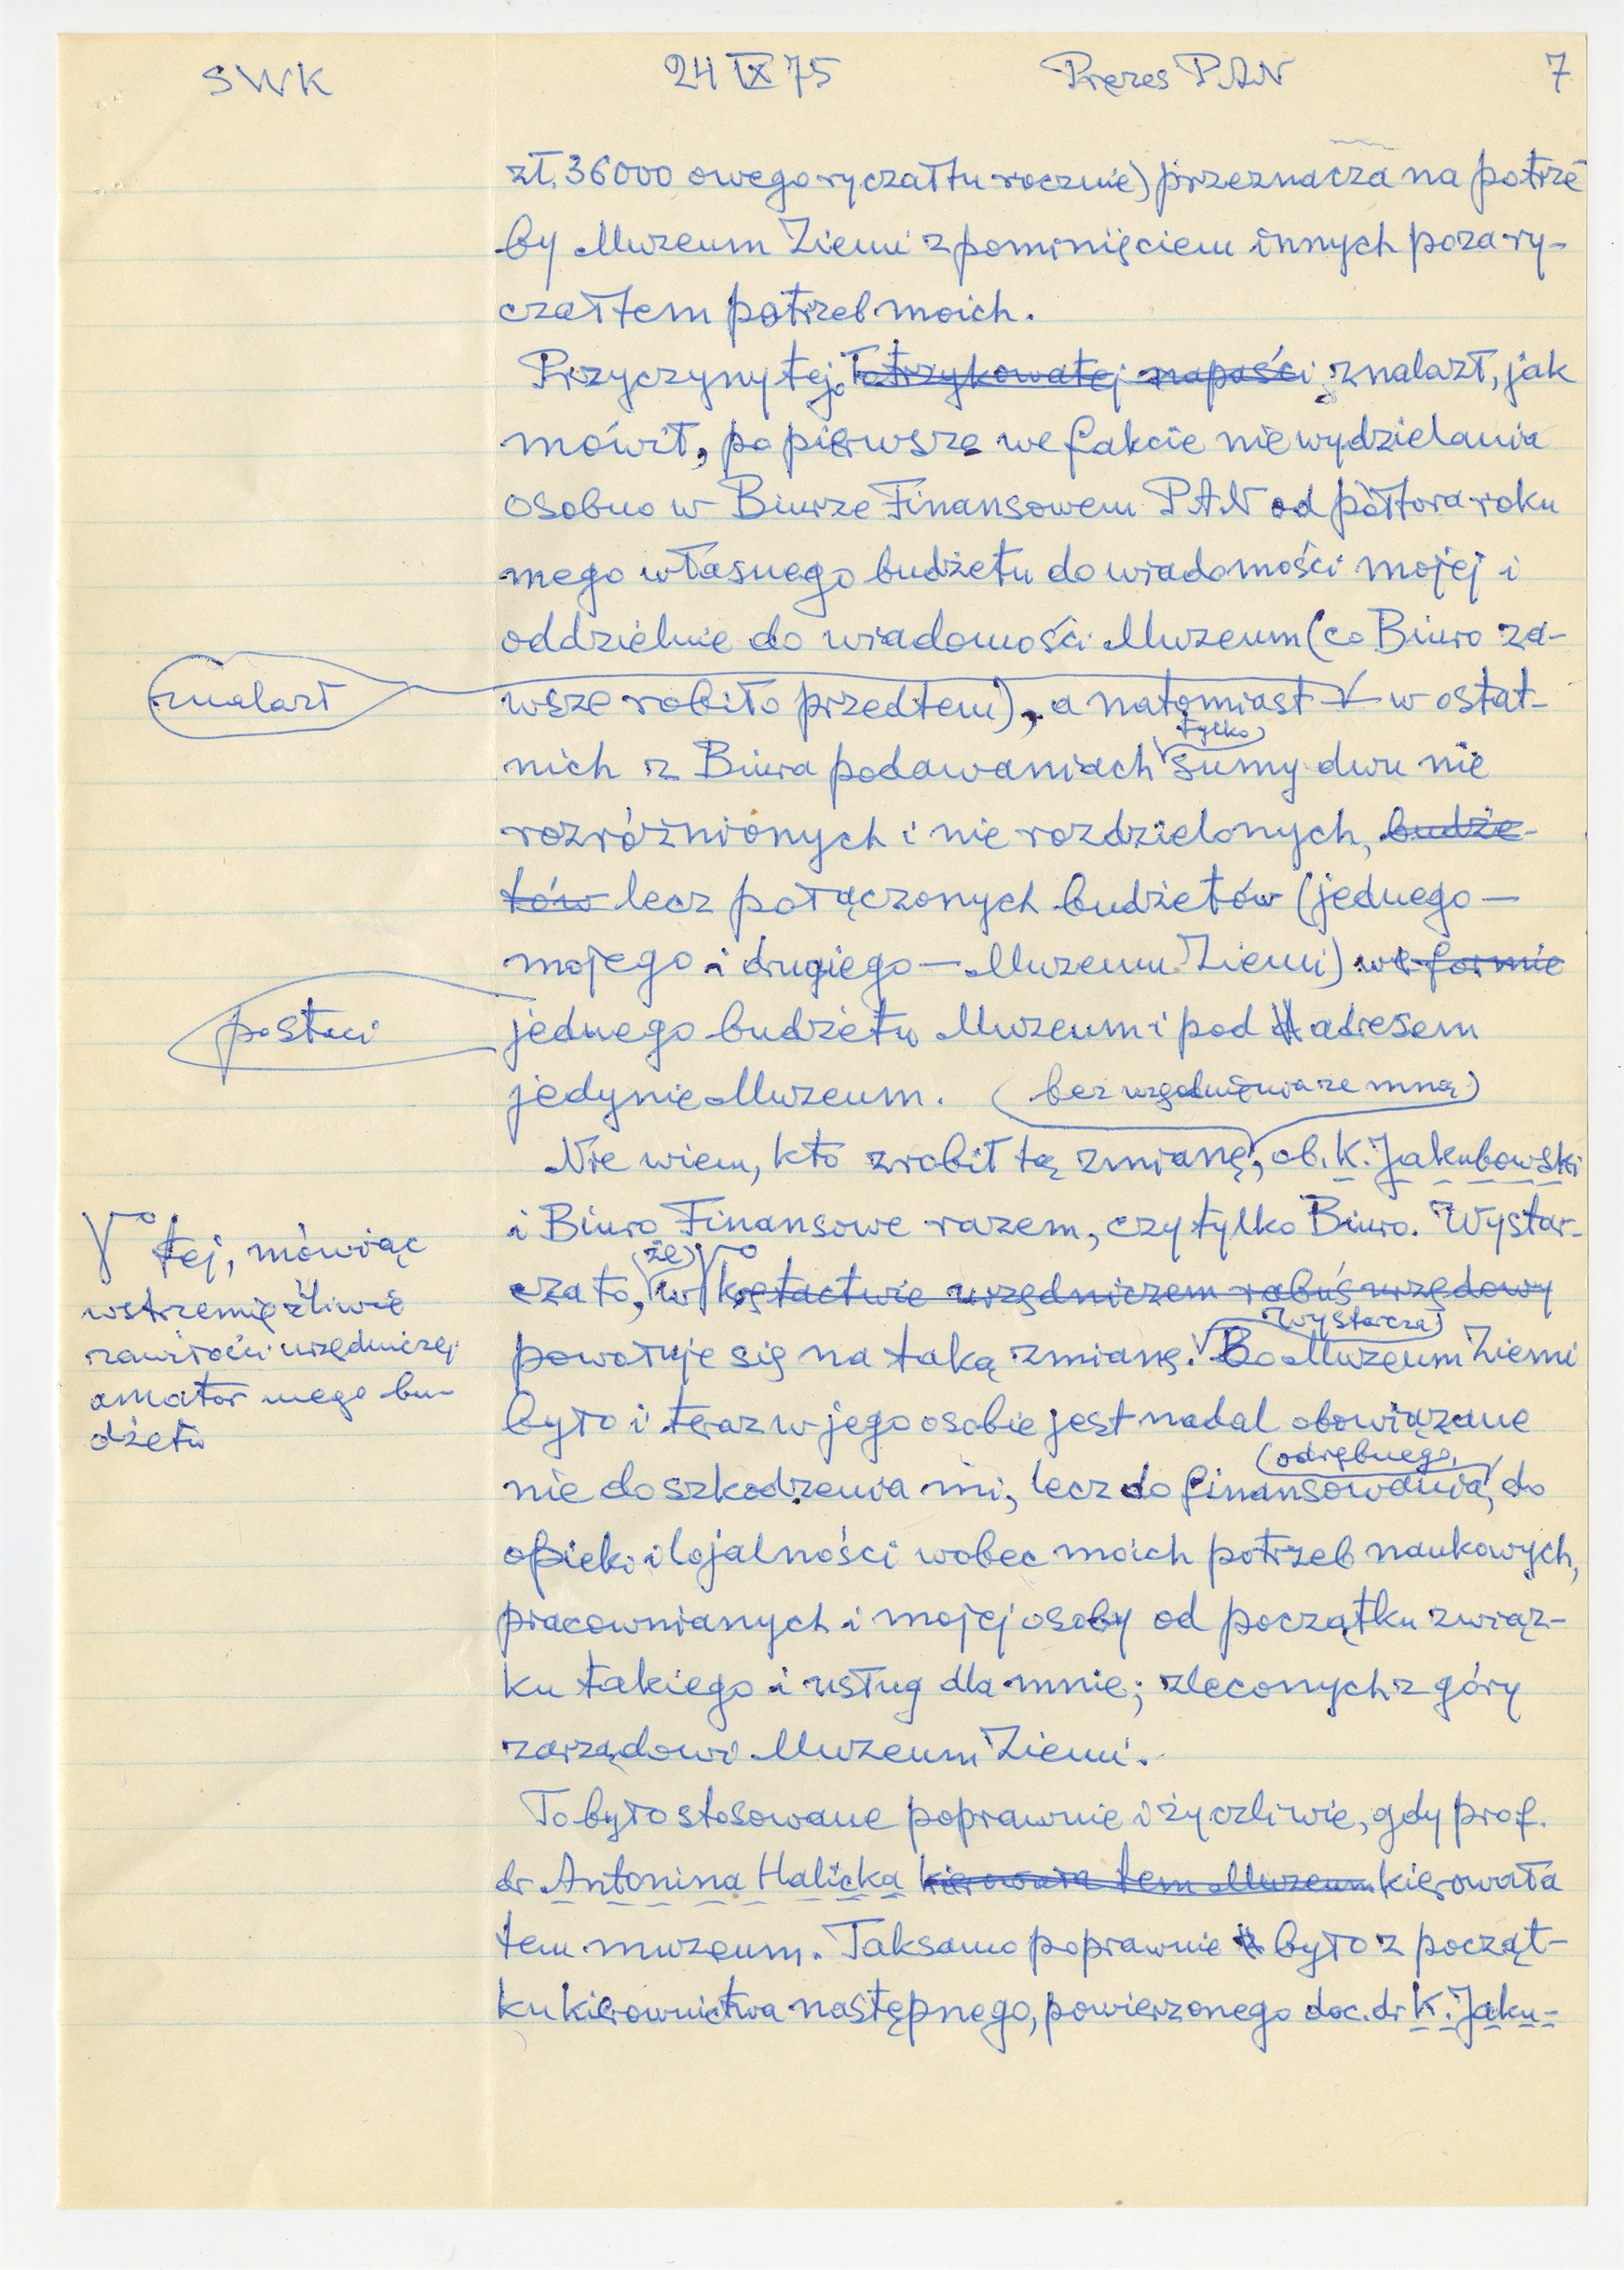 SWK 24 IX 75 Prezes PAN 7
zł. 36000 owego ryczałtu rocznie) przeznacza na potrze
by Muzeum Ziemi z pominięciem innych poza ry-
czałtem potrzeb moich.
Przyczyny tej łotrzykowatej napaści znalazł, jak
mówił, po pierwsze we fakcie nie wydzielania
osobno w Biurze Finansowem PAN od półtora roku
mego własnego budżetu do wiadomości mojej i
oddzielnie do wiadomości Muzeum (co Biuro za-
znalazł
wsze robiło przedtem), a natomiast w ostat-
tylko
nich z Biura podawaniach sumy dwu nie
rozróżnionych i nie rozdzielonych, budże-
tów lecz połączonych budżetów (jednego —
mojego i drugiego — Muzeum Ziemi) w formie
postaci
jednego budżetu Muzeum i pod adresem
jedynie Muzeum. (bez uzgodnienia ze mną)
Nie wiem, kto zrobił tą zmianę, ob. K. Jakubowski
i Biuro Finansowe razem, czy tylko Biuro. Wystar-
że
cza to, w urzędniczem rabuś urzędowy
tej, mówiąc
wstrzemięźliwie
zawiści urzędniczej
amator mego bu-
dżetu
wystarcza
powołuje się na taką zmianę. Bo Muzeum Ziemi
było i teraz w jego osobie jest nadal obowiązane
odrębnego
nie do szkodzenia mi, lecz do finansowania, do
opieki i lojalności wobec moich potrzeb naukowych,
pracownianych i mojej osoby od początku związ-
ku takiego i usług dla mnie; zleconych z góry
zarządowi Muzeum Ziemi.
To było stosowane poprawnie i życzliwie, gdy prof.
dr Antonina Halicka kierowała tem Muzeum kierowała
tem muzeum. Taksamo poprawnie było z począt-
ku kierownictwa następnego, powierzonego doc. dr K. Jaku-